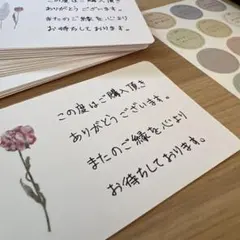 この度はご購入頂き
ありがとうございます。
またのご縁を心より
お待ちしております。
この度はご購入頂き
ありがとうございます。
またのご縁を心より
お待ちしております。